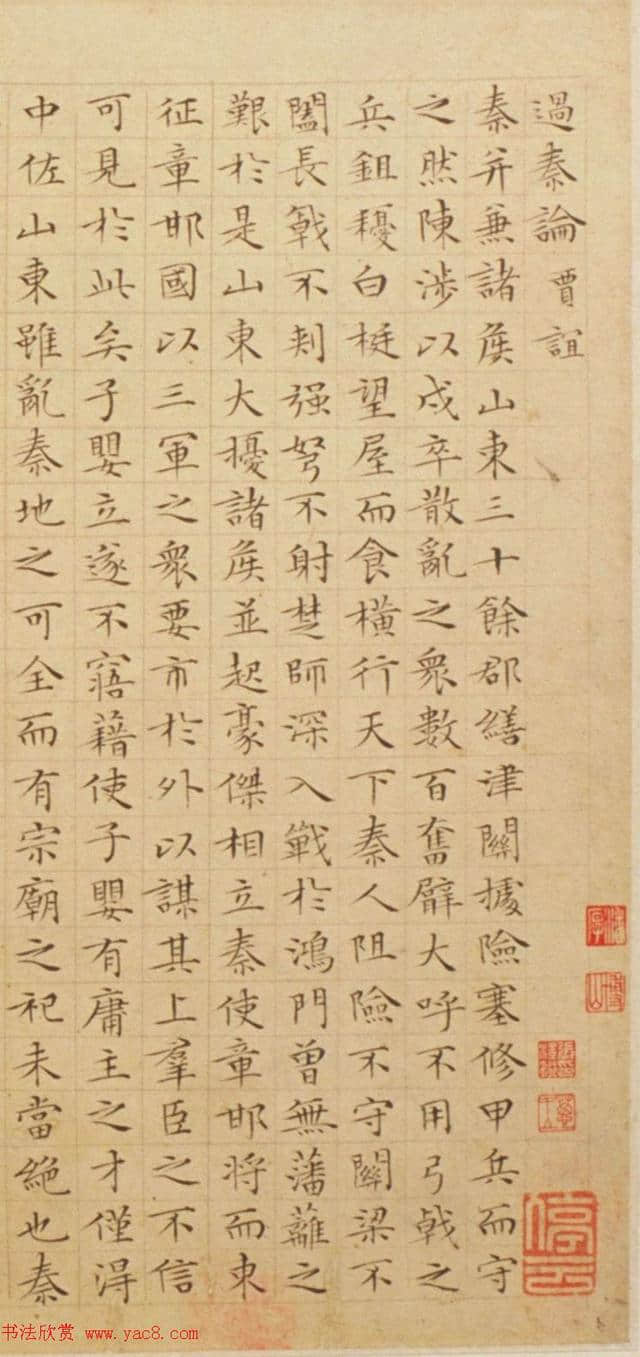 過秦論 賈誼
秦并兼諸侯山東三十餘郡繕津關據險塞修甲兵而守
之然陳涉以戍卒散亂之衆數百奮臂大呼不用弓戟之
兵鉏耰白梃望屋而食橫行天下秦人阻險不守關梁不
闔長戟不刺强弩不射楚師深入戰於鴻門曾無藩籬之
艱於是山東大擾諸侯並起豪傑相立秦使章邯將而東
征章邯國以三軍之衆要市於外以謀其上羣臣之不信
可見於此矣子嬰立遂不寤藉使子嬰有庸主之才僅得
中佐山東雖亂秦地之可全而有宗廟之祀未當絕也秦
停雲
书法欣赏 www.yac8.com